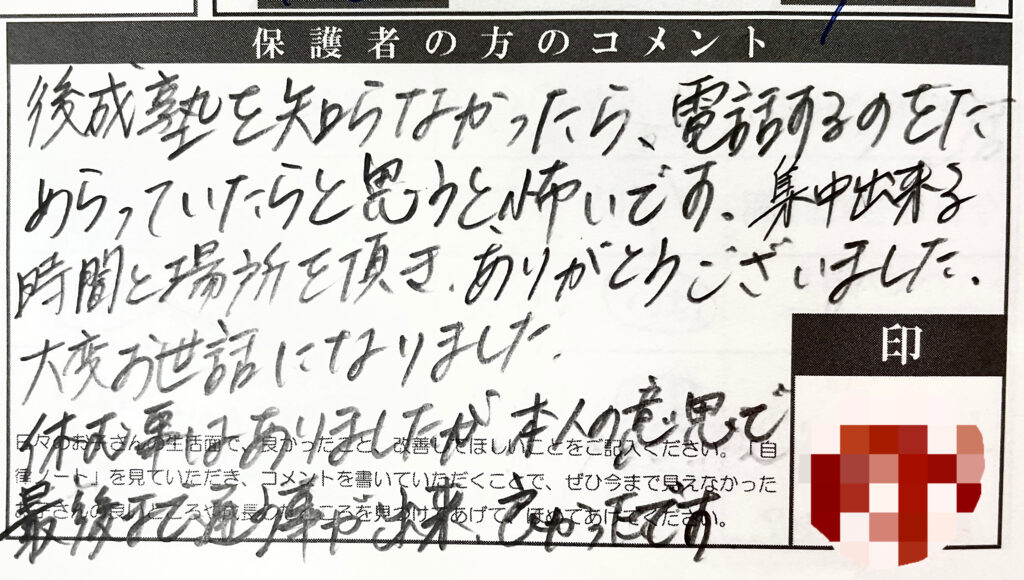 保護者の方のコメント
後成塾を知らなかったら、電話するのをた
めらっていたらと思うと怖いです。集中出来る
時間と場所を頂き、ありがとうございました。
大変お世話になりました。
印
休む事はありましたが本人の意思で
日々のお子さんの生活面で、良かったこと、改善してほしいことをご記入ください。「自
律ノート」を見ていただき、コメントを書いていただくことで、ぜひ今まで見えなかった
最後まで通う事が出来、よかったです
お子さんの良いところや成長のたところを見つけてあげて、ほめてあげてください。